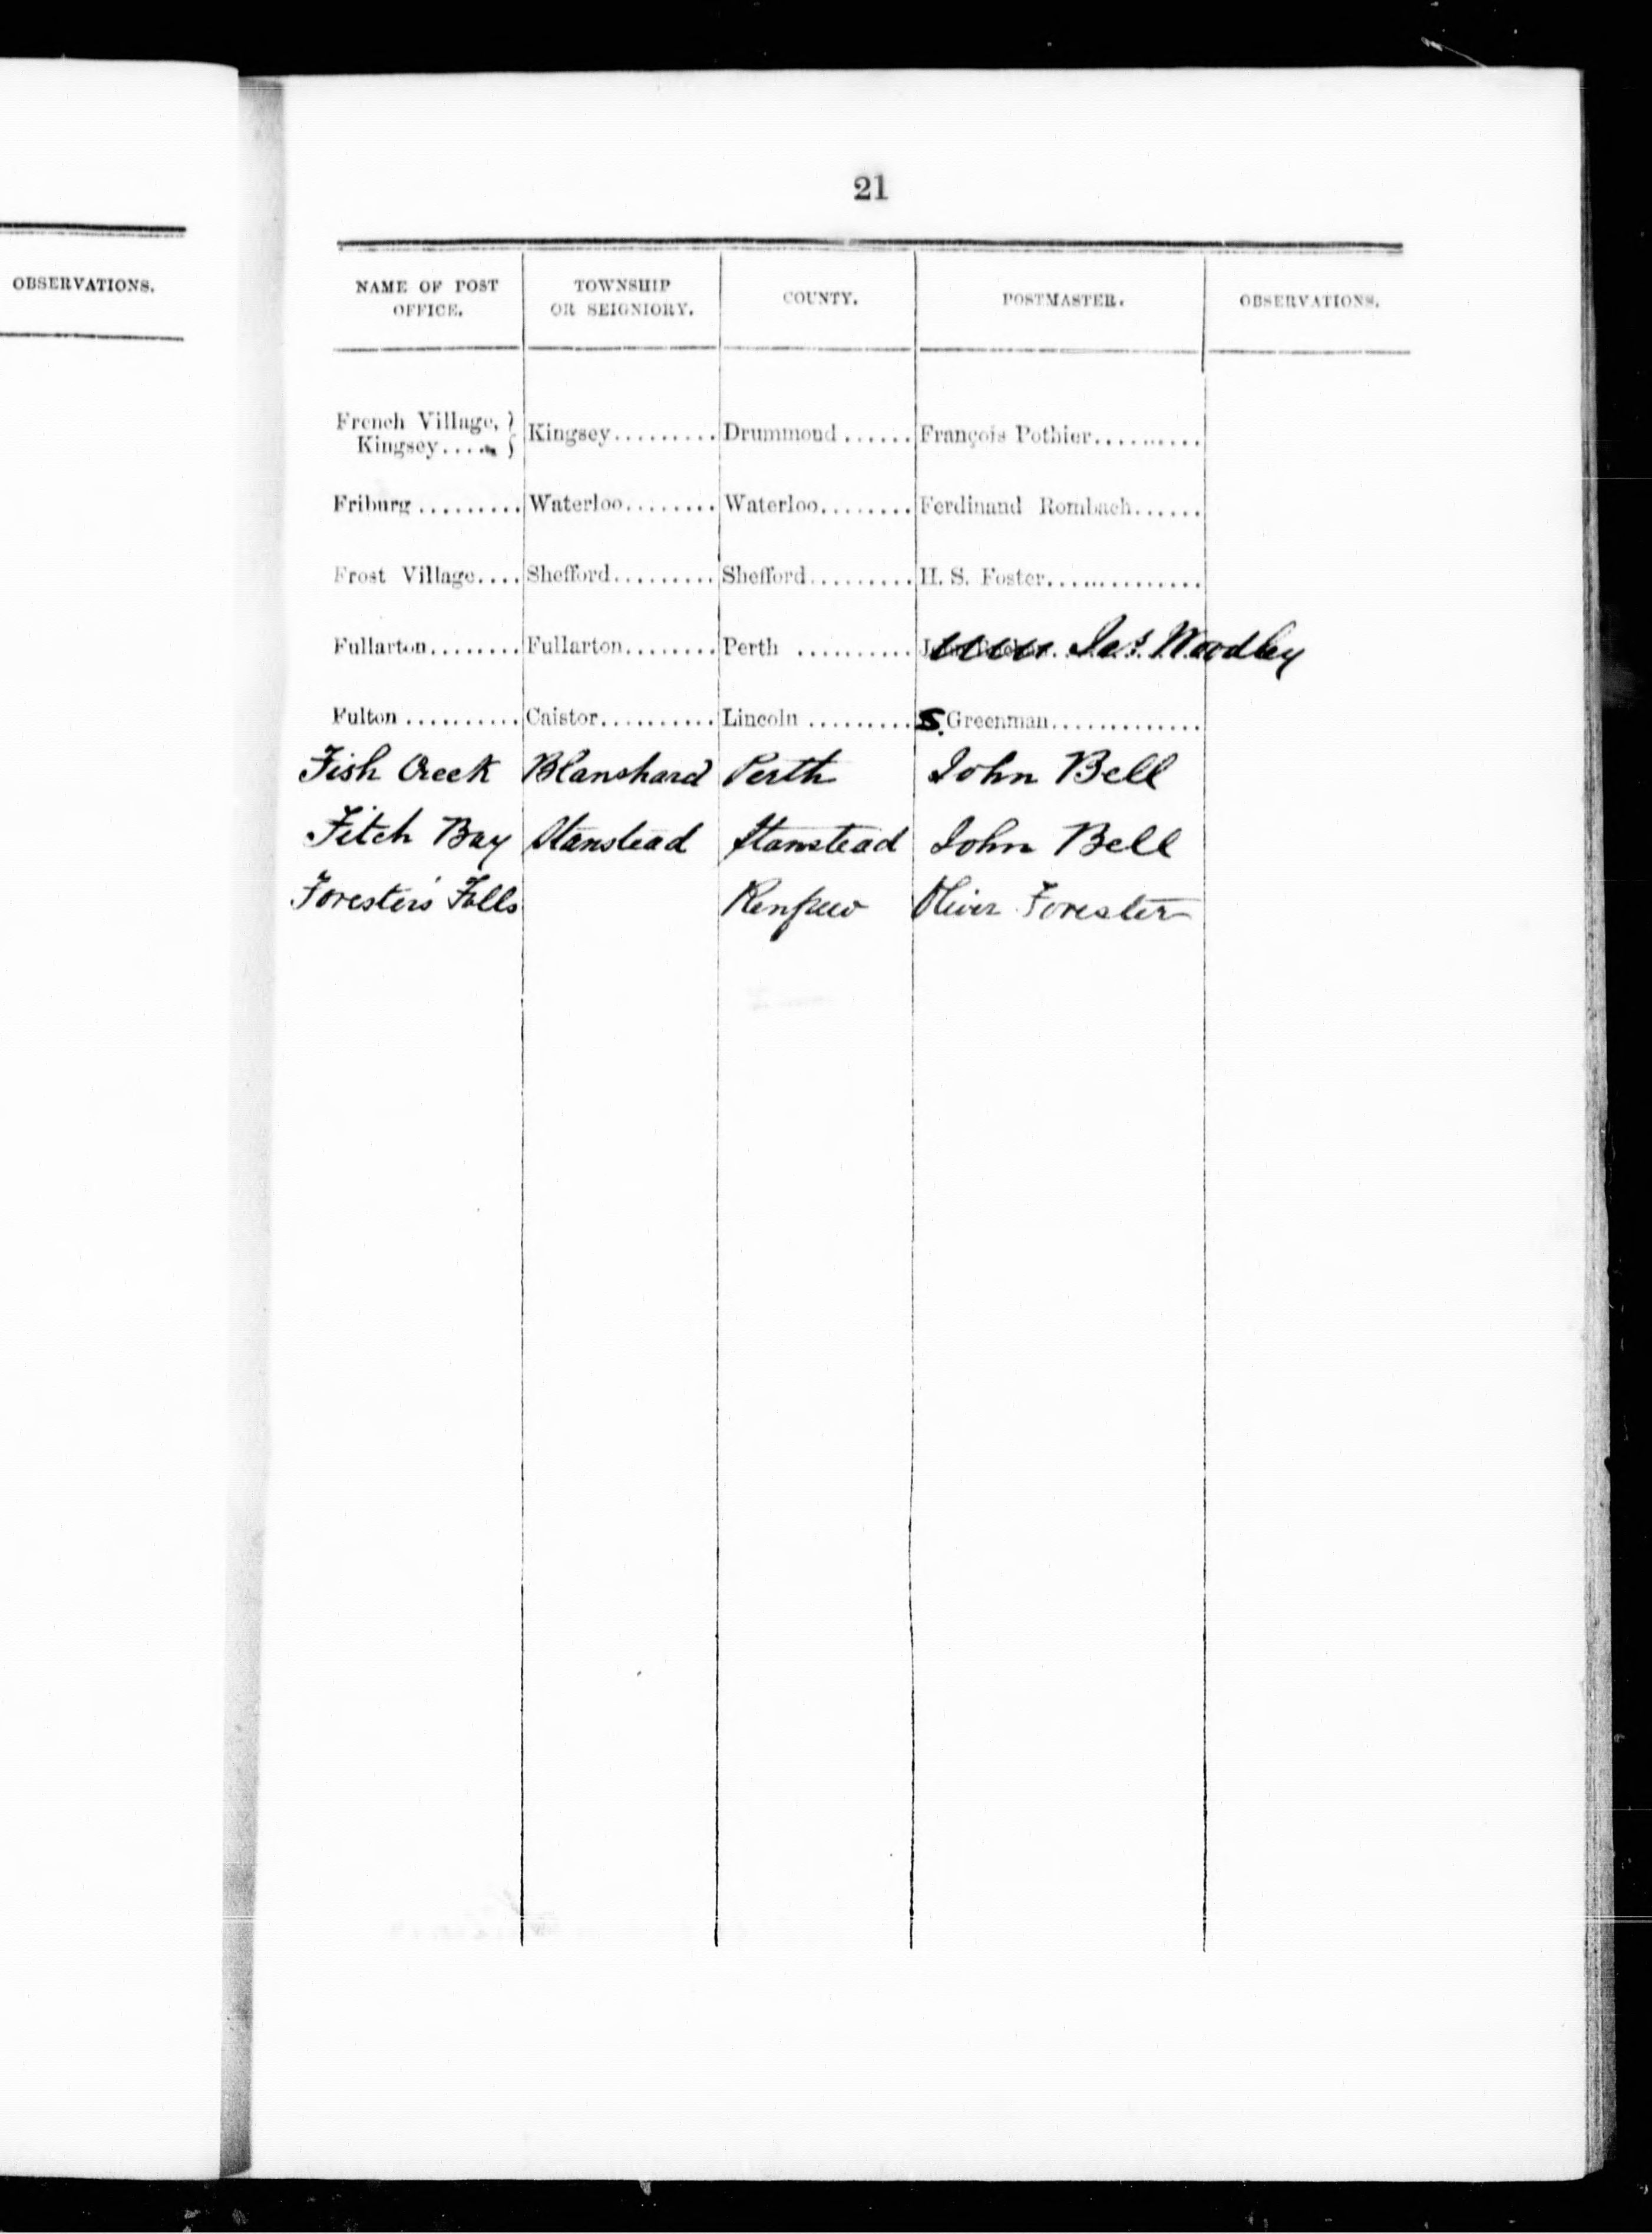 OBSERVATIONS.
21
NAME OF POST OFFICE. TOWNSHIP OR SEIGNIORY. COUNTY. POSTMASTER. OBSERVATIONS.
French Village, Kingsey.... } Kingsey......... Drummond...... François Pothier..........
Friburg......... Waterloo........ Waterloo........ Ferdinand Rombach......
Frost Village.... Shefford......... Shefford......... H. S. Foster..............
Fullarton........ Fullarton........ Perth .......... Jas. Woodley
Fulton .......... Caistor.......... Lincoln ......... S. Greenman.............
Fish Creek Blanshard Perth John Bell
Fitch Bay Stanstead Stanstead John Bell
Forester's Falls Renfrew Oliver Forester